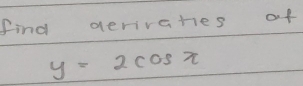 find derivaties of
y = 2 cos x